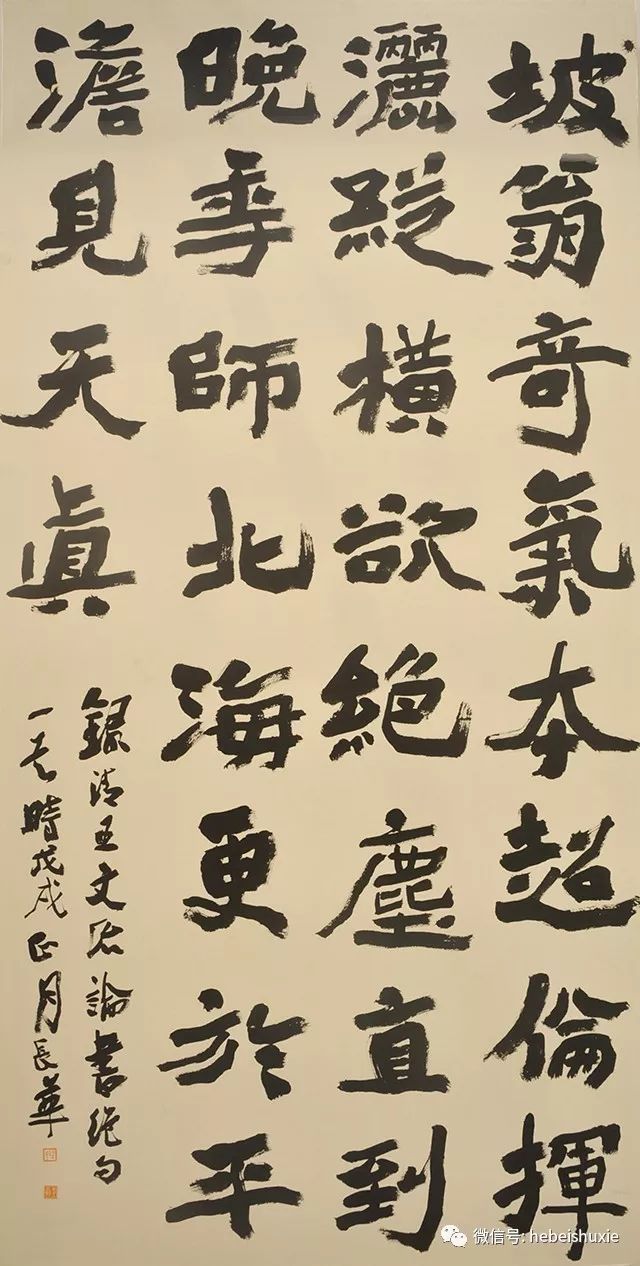 坡翁奇氣本超倫揮
灑縱橫欲絕塵直到
晚季師北海更於平
澹見天眞
錄清王文治論書絕句
一首時戊戌正月長華
微信号: hebeishuxie